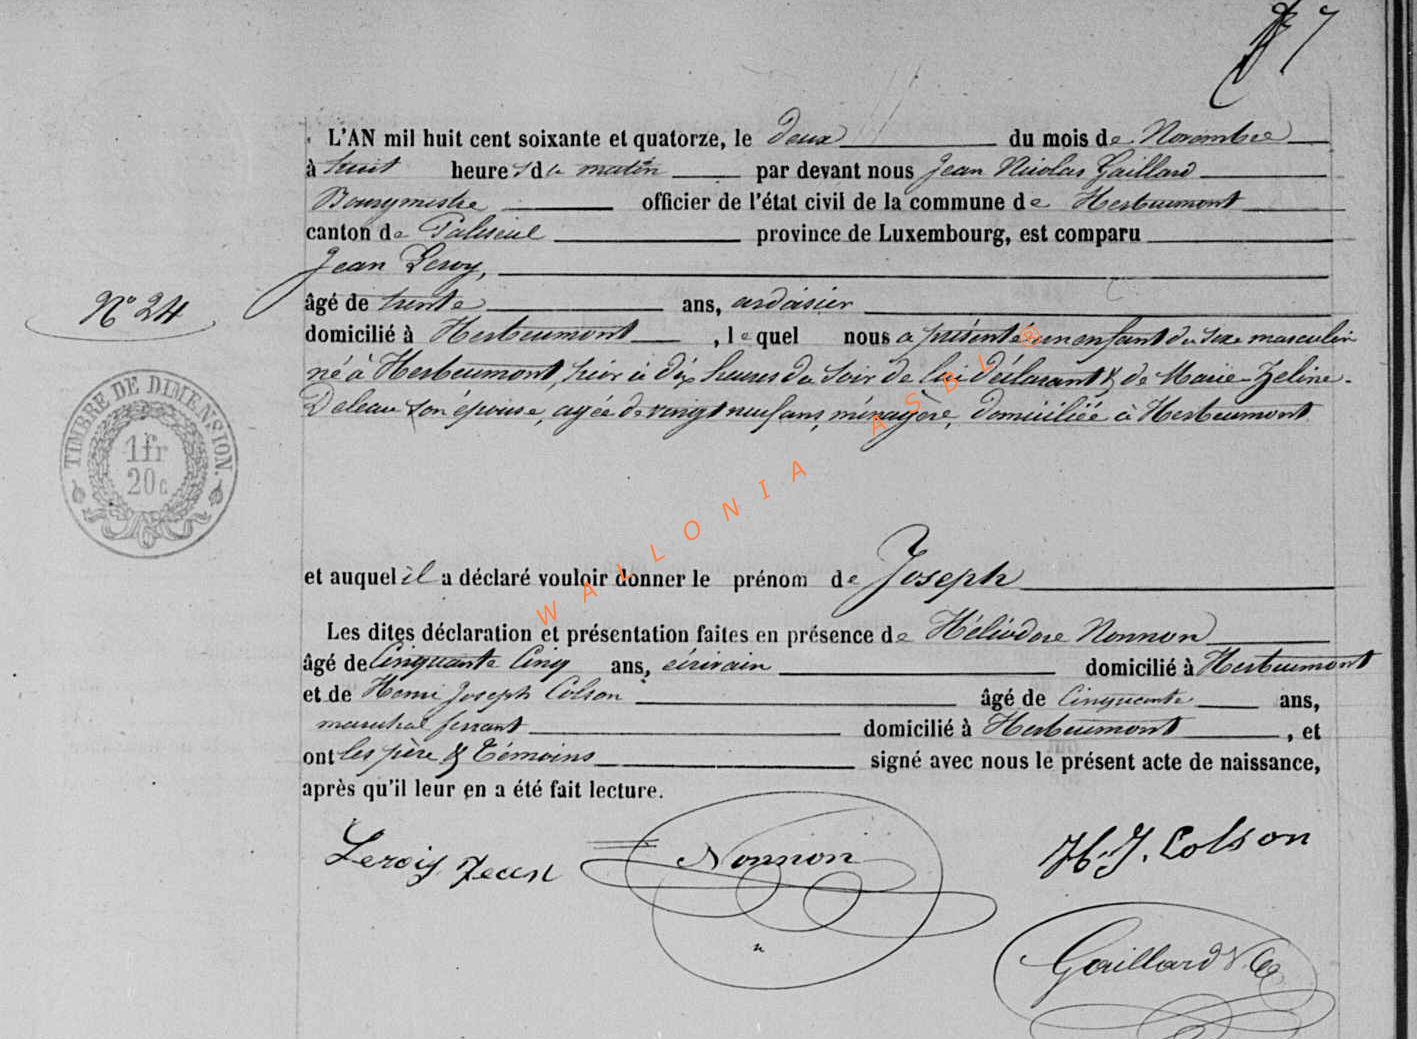 7
L'AN mil huit cent soixante et quatorze, le deux du mois de Novembre
à huit heures du matin par devant nous Jean Nicolas Gaillard
Bourgmestre officier de l'état civil de la commune de Herbeumont
canton de Paliseul province de Luxembourg, est comparu
Jean Leroy,
âgé de trente ans, ardoisier
N° 24
domicilié à Herbeumont, lequel nous a présenté un enfant du sexe masculin
né à Herbeumont, hier à dix heures du soir de lui déclarant & de Marie-Zeline
Deleau son épouse, agée de vingt neuf ans, ménagère, domiciliée à Herbeumont
TIMBRE DE DIMENSION.
1fr
20c
WALLONIA ASBL @
et auquel il a déclaré vouloir donner le prénom de Joseph
Les dites déclaration et présentation faites en présence de Héliodore Nonnon
âgé de Cinquante Cinq ans, écrivain domicilié à Herbeumont
et de Henri Joseph Colson âgé de Cinquante ans,
maréchal ferrant domicilié à Herbeumont, et
ont les père & témoins signé avec nous le présent acte de naissance,
après qu'il leur en a été fait lecture.
Lerois Jean Nonnon H. J. Colson
Gaillard